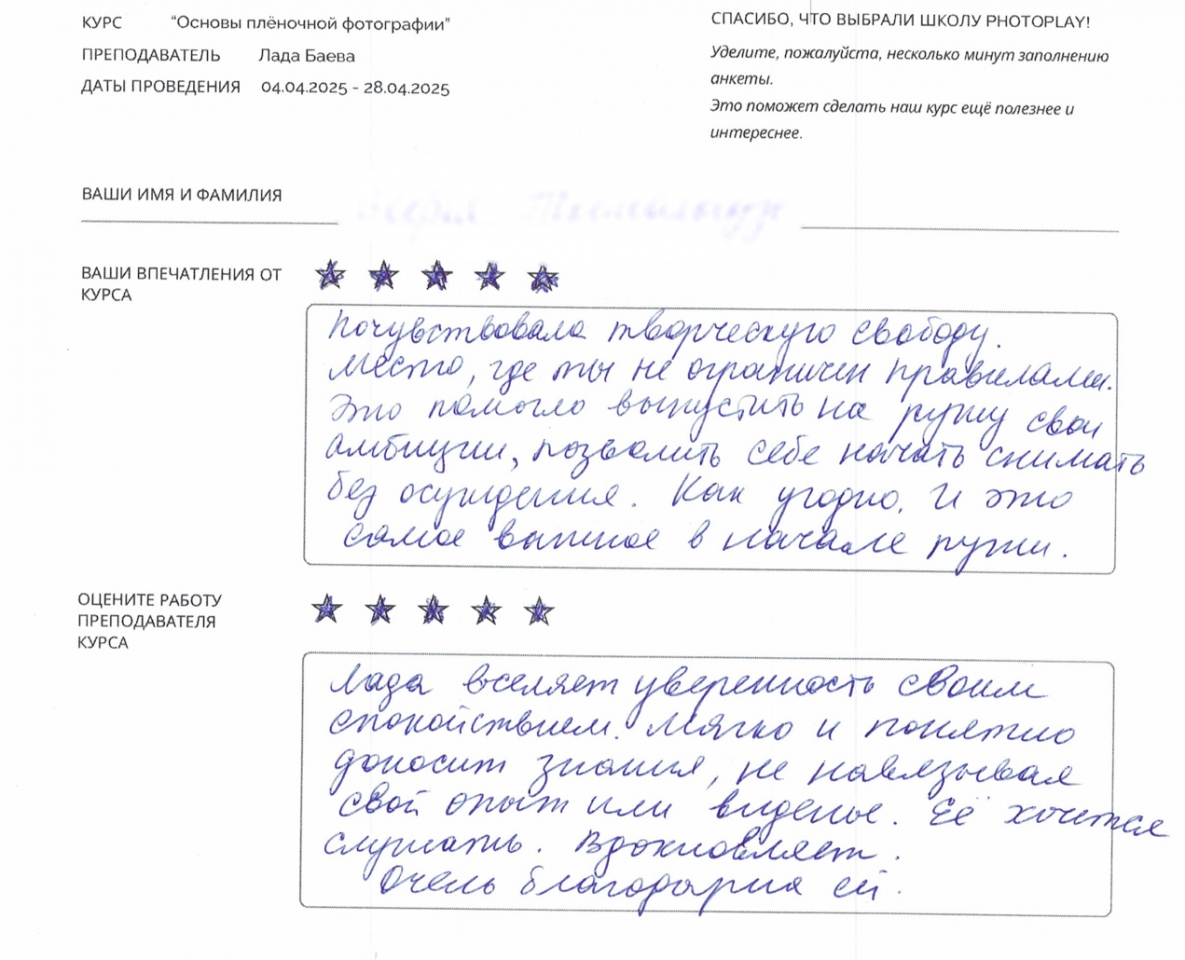 КУРС "Основы плёночной фотографии"
ПРЕПОДАВАТЕЛЬ Лада Баева
ДАТЫ ПРОВЕДЕНИЯ 04.04.2025 - 28.04.2025
СПАСИБО, ЧТО ВЫБРАЛИ ШКОЛУ PHOTOPLAY!
Уделите, пожалуйста, несколько минут заполнению
анкеты.
Это поможет сделать наш курс ещё полезнее и
интереснее.
ВАШИ ИМЯ И ФАМИЛИЯ
ВАШИ ВПЕЧАТЛЕНИЯ ОТ
КУРСА
Почувствовала творческую свободу.
Место, где ты не ограничен правилами.
Это помогло выпустить на ружу свои
амбиции, позволить себе начать снимать
без осуждения. Как угодно. И это
самое важное в начале
ОЦЕНИТЕ РАБОТУ
ПРЕПОДАВАТЕЛЯ
КУРСА
Лада вселяет уверенность своим
спокойствием. Мягко и понятно
доносит знания, не навязывая
свой опыт или виденье. Её хочется
слушать. Вдохновляет.
Очень благодарна ей.